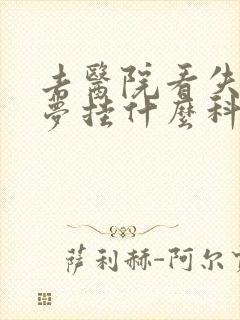 去醫院看失
夢挂什麼科
萨利赫-阿尔